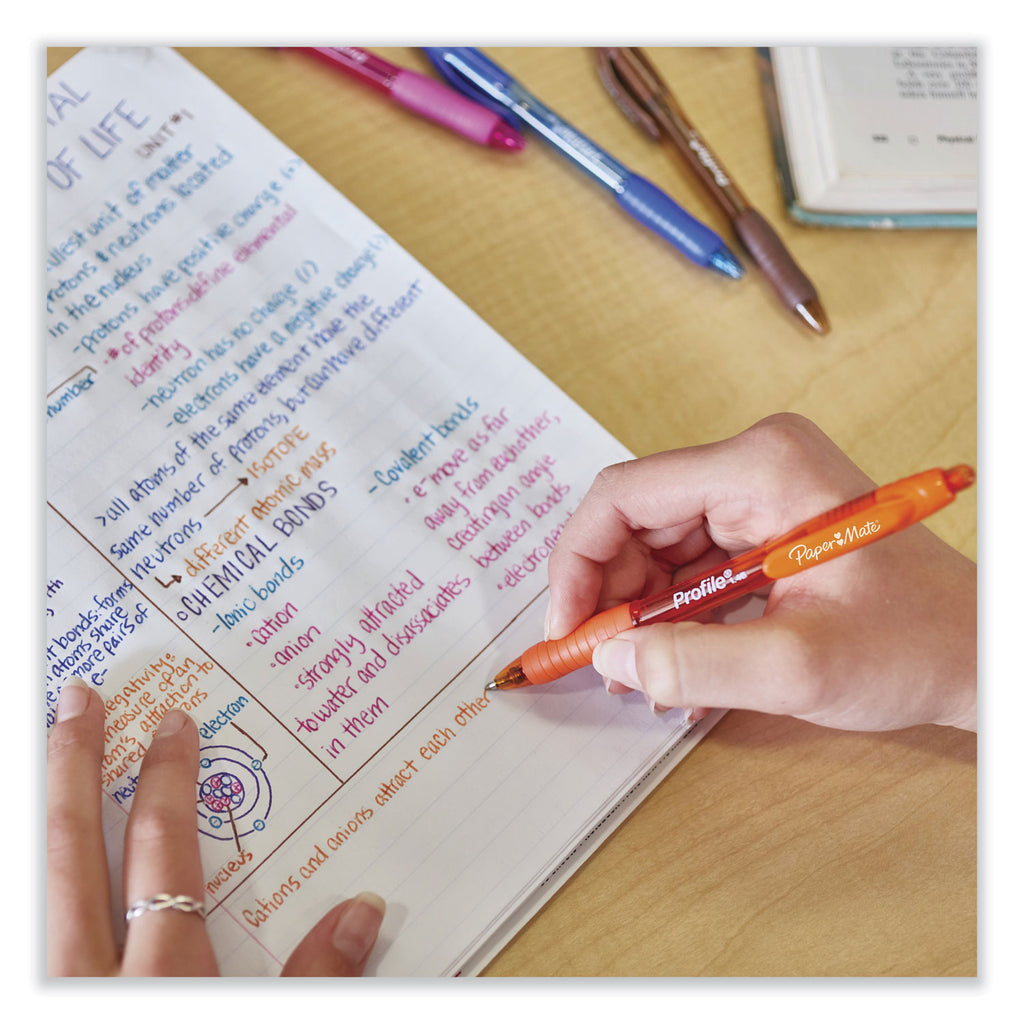 OF LIFE
UNIT #1
unit of matter
protons & neutrons located
in the nucleus
-protons have positive charge (+)
·# of protons define elemental
identity
-neutron has no charge ( )
-electrons have a negative charge (-)
>all atoms of the same element have the
same number of protons, but can have different
neutrons → ISOTOPE
↳ different atomic mass
number
o CHEMICAL BONDS
-Ionic bonds
·cation
·anion
·strongly attracted
to water and disassociates
in them
-Covalent bonds
·e⁻ move as far
away from each other,
creating an angle
between bonds
·electroneg
bonds: forms
atoms share
more pairs of
e-
negativity:
measure of an
attraction to
shared
electron
nucleus
Cations and anions attract each other
Profile® 1.4B
Paper Mate®